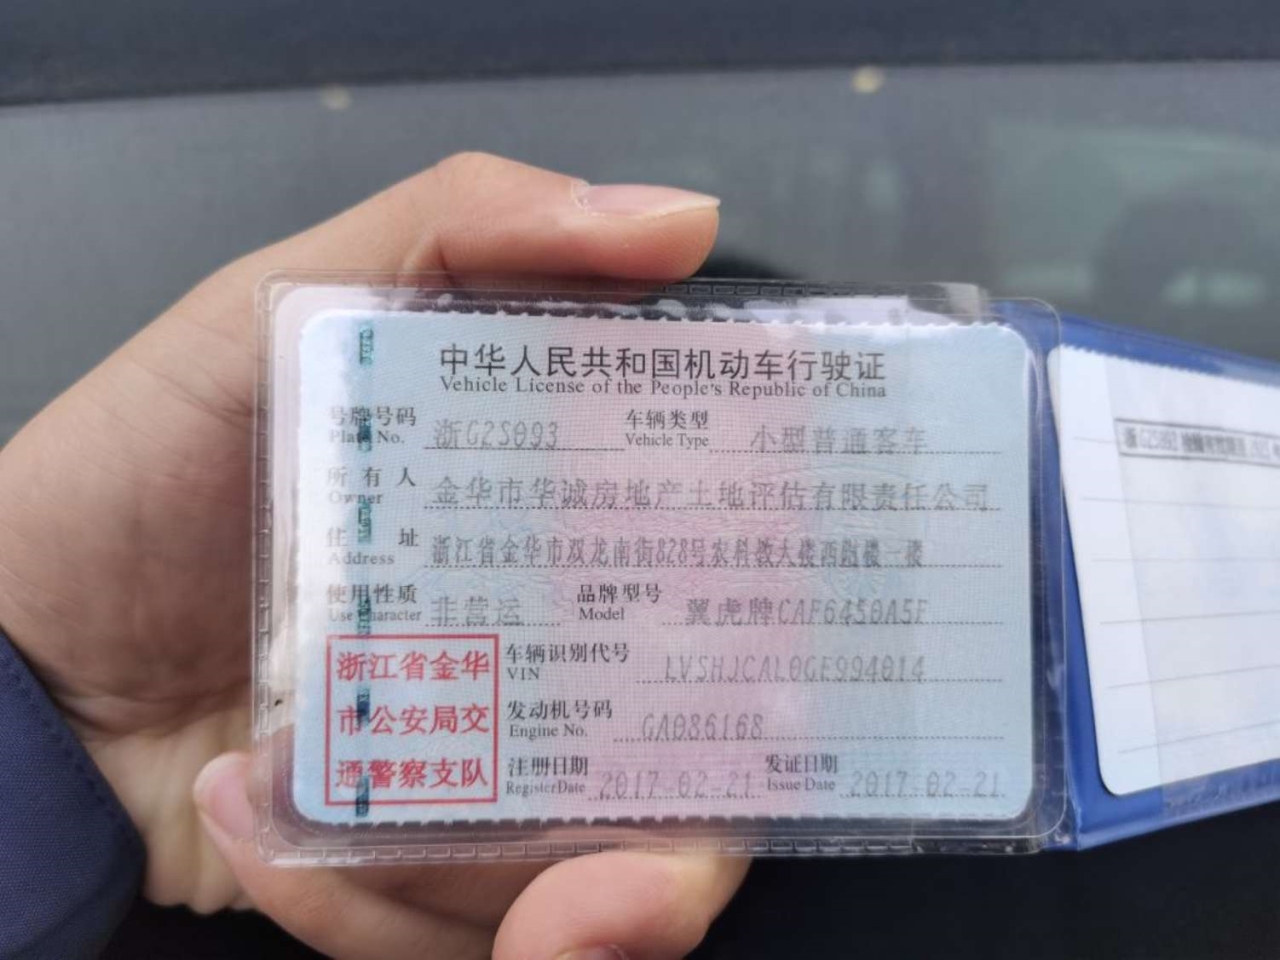 中华人民共和国机动车行驶证
Vehicle License of the People's Republic of China
号牌号码 浙G2S093 车辆类型 小型普通客车
Plate No. Vehicle Type
所有人 金华市华诚房地产土地评估有限责任公司
Owner
住址 浙江省金华市双龙南街828号农科教大楼西附楼一楼
Address
使用性质 非营运 品牌型号 翼虎牌CAF6450A5F
Use Character Model
浙江省金华
市公安局交
通警察支队
车辆识别代号 LVSHJCAL0GE994014
VIN
发动机号码 GA086168
Engine No.
注册日期 2017-02-21 发证日期 2017-02-21
Register Date Issue Date